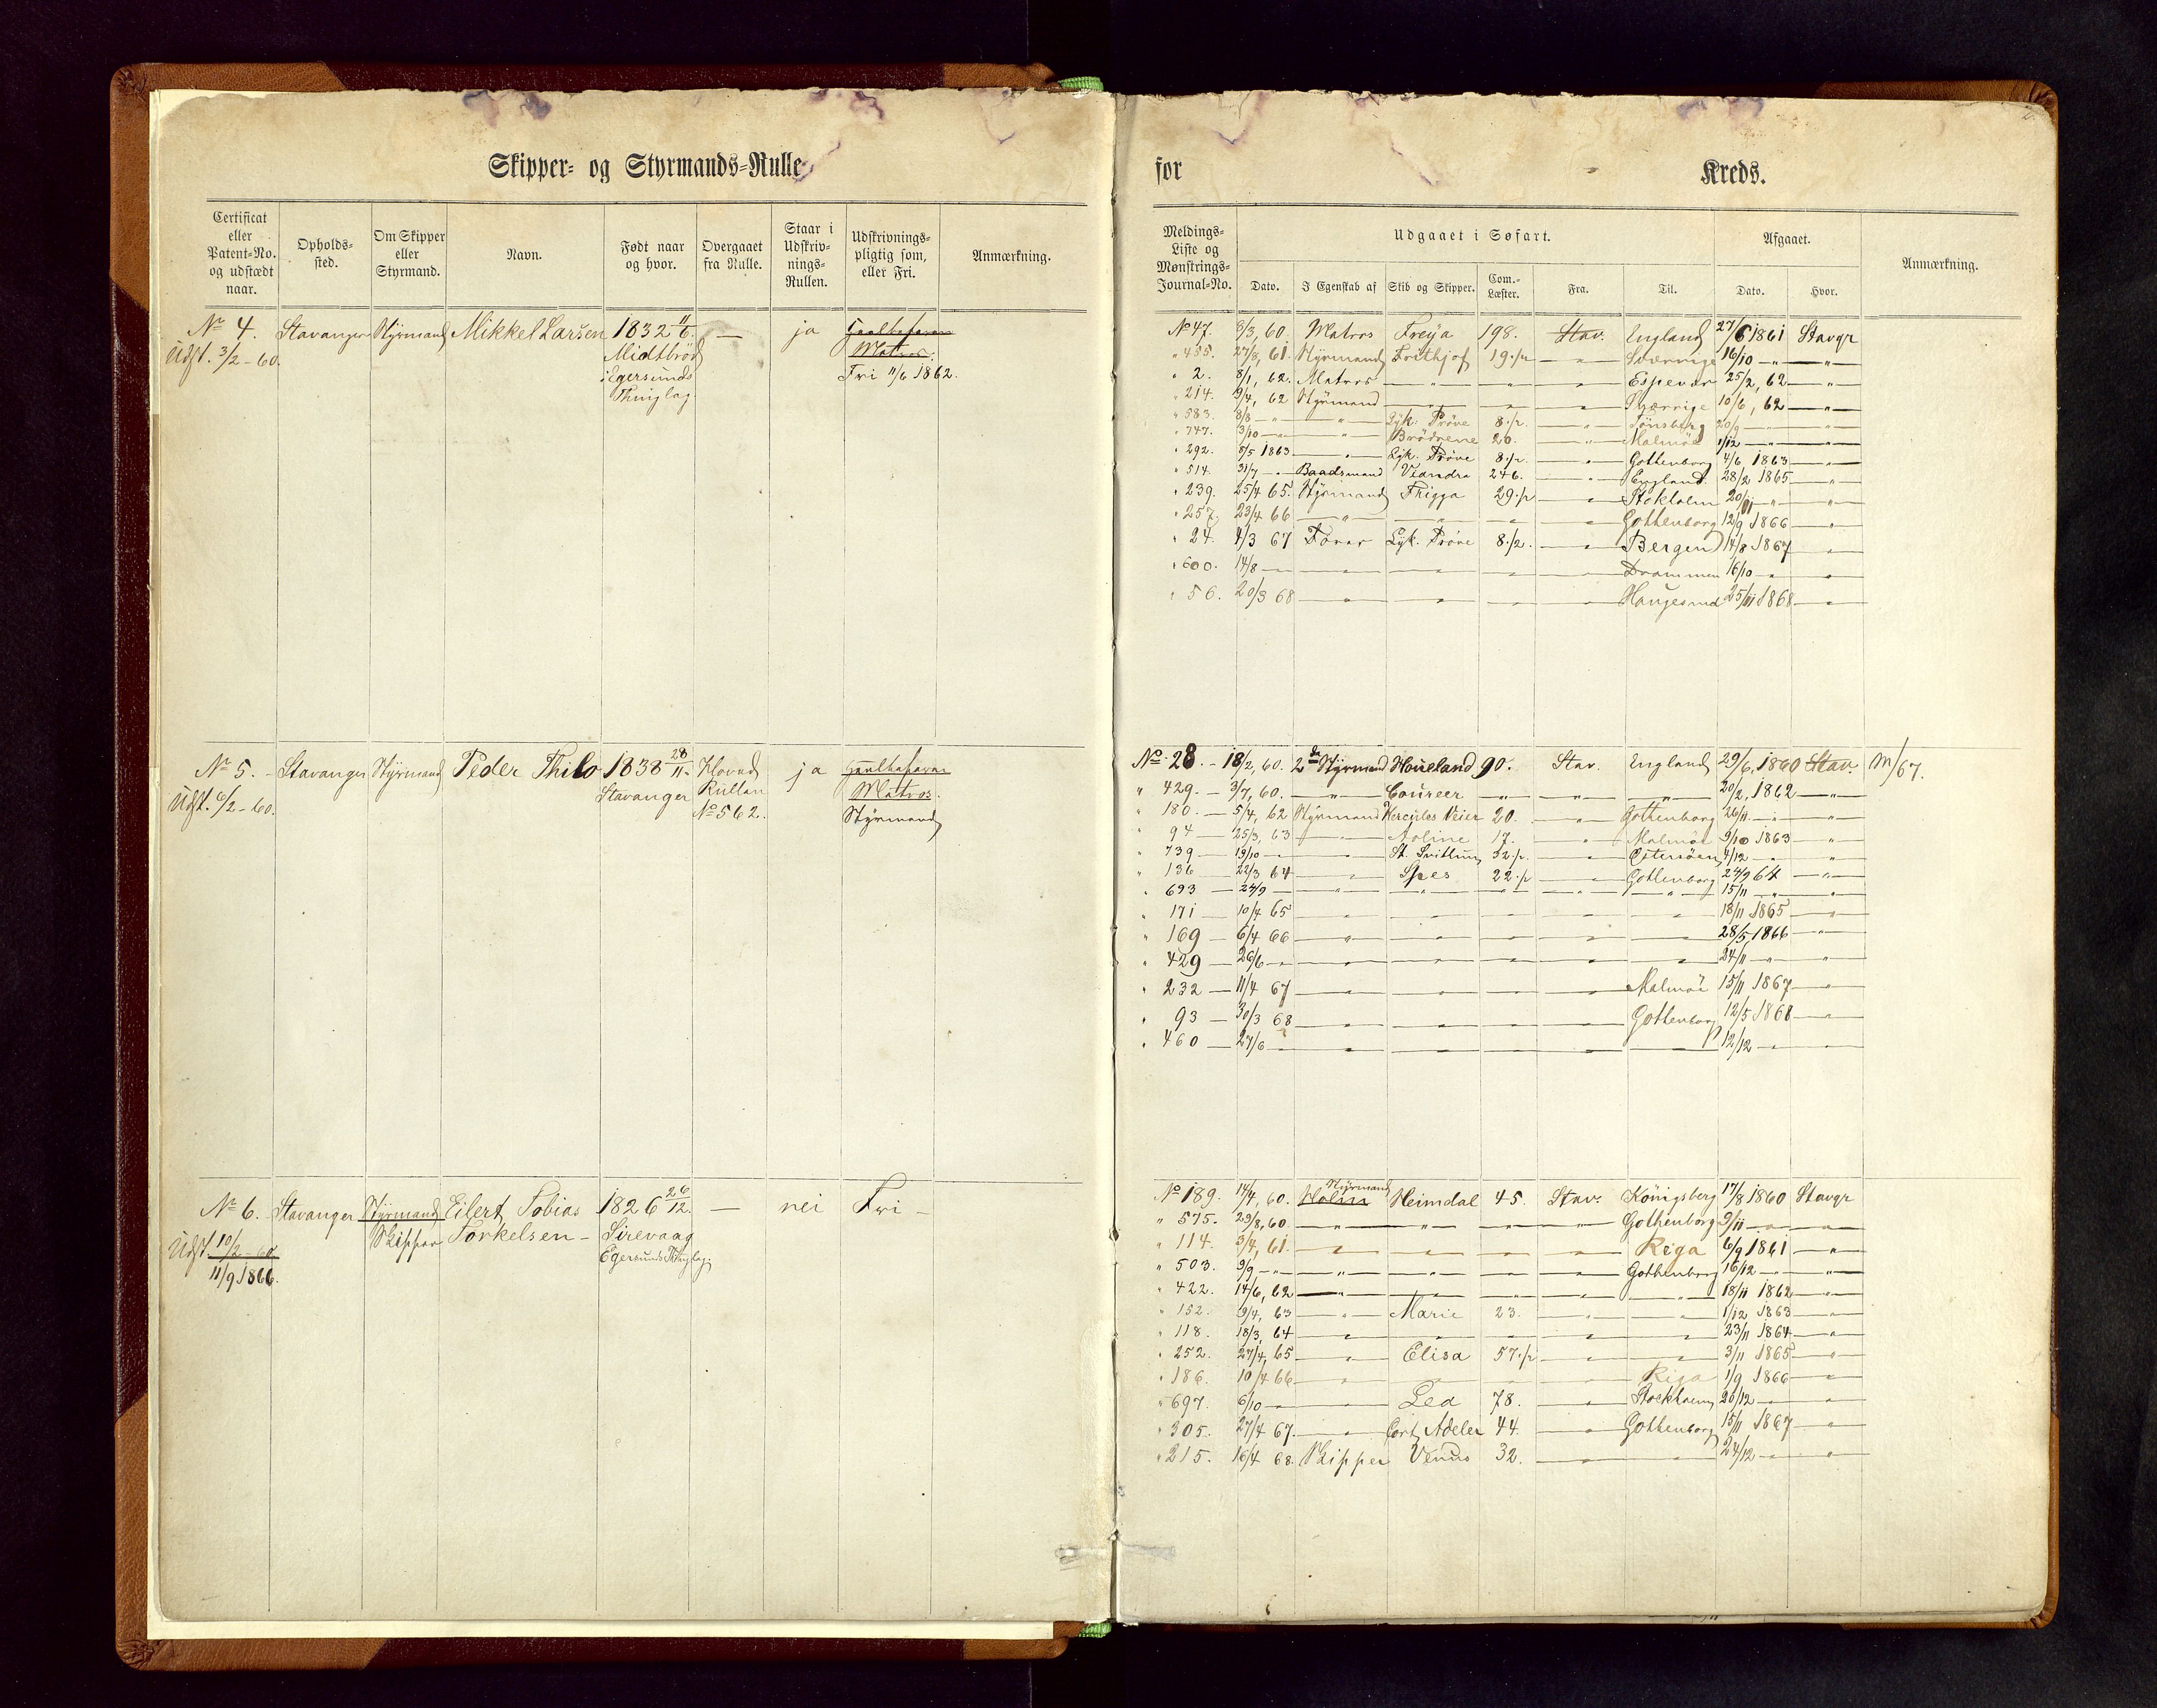 Skipper- og Styrmands-Rulle
Certificat eller Patent-No. og udstædt naar.
Opholds-sted.
Om Skipper eller Styrmand.
Navn.
Født naar og hvor.
Overgaaet fra Rulle.
Staar i Udskriv-nings-Rullen.
Udskrivnings-pligtig som, eller Fri.
Anmærkning.
No 4. Stavanger Styrmand Mikkel Larsen 1832 11/6. — ja
Udst. 3/2 - 60. Midtbröd Matros.
Egersunds Fri 11/6 1862.
Thinglag
No 5. Stavanger Styrmand Peder Thilo 1838 28/11. Hoved ja
Udst. 6/2 - 60. Stavanger Rullen Matros.
No 562. Styrmand
No 6. Stavanger Styrmand Eilert Tobias 1826 26/12. — nei Fri -
Udst. 10/2 - 60 Skipper Torkelsen - Sirevaag
11/9 1866. Egersunds Thinglag.
for Kreds.
2.
Meldings-Liste og Mønstrings-Journal-No.
Udgaaet i Søfart.
Afgaaet.
Anmærkning.
Dato. I Egenskab af Skib og Skipper. Com.-Læster. Fra. Til. Dato. Hvor.
No 47. 3/3, 60. Matros Freya 198. Stav. England 27/6 1861 Stavgr
" 455. 27/8, 61. Styrmand Frithjof 19 1/2 — " Sverrige 16/10 — " — "
" 2. 8/1, 62. Matros — " — " — " Espevær 25/2, 62 — "
" 214. 9/4, 62 Styrmand — " — " — " Sverrige 10/6, 62 — "
" 583. 8/8 — " — " Lyk. Pröve 8 1/2. — " Tönsberg 20/9 — " — "
" 747. 3/10 — " — " Brödrene 20. — " Malmöe 1/12 — " — "
" 292. 5/5 1863 — " Lyk. Pröve 8 1/2. — " Gottenborg 4/6 1863 — "
" 514. 31/7 — " Baadsmand 246. — " England 28/2 1865 — "
" 239. 25/4 65. Styrmand Frigga 29 1/2 — " Stokholm 20/11 — " — "
" 257. 23/4 66 — " — " — " — " Gottenborg 12/9 1866 — "
" 24. 4/3 67 Förer Lyk. Pröve 8 1/2. — " Bergen 14/8 1867 — "
" 600. 14/8 — " — " — " — " — " Drammen 16/10 — " — "
" 56. 20/3 68 — " — " — " — " Haugesund 25/11 1868 — "
No 28. - 18/2, 60. 2den Styrmand Houeland 90. Stav. England 29/6, 1860 Stav. M/67.
" 429. — 3/7, 60. — " Coureer — " — " — " 20/2, 1862 — "
" 180. — 5/4, 62 Styrmand Hercules Veier 20. — " Gothenborg 26/11 — " — "
" 94 — 25/3, 63 — " Aoline 17. — " Malmöe 9/10 1863 — "
" 739 — 19/10 — " — " St. Svithun 32 1/2. — " Östersöen 4/12 — " — "
" 136 — 22/3 64 — " Spes 22 1/2 — " Gottenborg 24/9 64 — "
" 693 — 24/9 — " — " — " — " — " — " 15/11 — " — "
" 171 — 10/4 65 — " — " — " — " — " 18/11 1865 — "
" 169 — 6/4 66 — " — " — " — " — " 28/5 1866 — "
" 429 — 26/6 — " — " — " — " — " — " 24/11 — " — "
" 232 — 11/4 67 — " — " — " — " Malmöe 15/11 1867 — "
" 93 — 30/3 68 — " — " — " — " Gothenborg 12/5 1868 — "
" 460 — 27/6 — " — " — " — " — " — " 12/12 — " — "
No 189. 14/4, 60. Styrmand Heimdal 45. Stav. Königsberg 17/8 1860 Stavgr
" 575. 29/8, 60. — " — " — " — " Gothenborg 9/11 — " — "
" 114. 3/4, 61. — " — " — " — " Riga 6/9 1861 — "
" 503. 9/9 — " — " — " — " — " Gothenborg 16/12 — " — "
" 422. 14/6, 62 — " — " — " — " — " 18/11 1862 — "
" 152. 9/4, 63 — " Marie 23. — " — " 1/12 1863 — "
" 118. 18/3, 64 — " — " — " — " — " 23/11 1864 — "
" 252. 27/4, 65 — " Elisa 57 1/2 — " — " 3/11 1865 — "
" 186. 10/4 66 — " — " Riga 1/9 1866 — "
" 697. 6/10 — " — " Lea 78. — " Stockholm 26/12 — " — "
" 305. 27/4 67. — " Cort Adeler 44. — " Gothenborg 15/11 1867 — "
" 215. 16/4 68. Skipper Venus 32. — " — " 24/12 — " — "